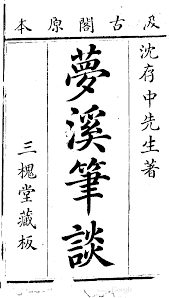 汲古閣原本
沈存中先生著
夢溪筆談
三槐堂藏板